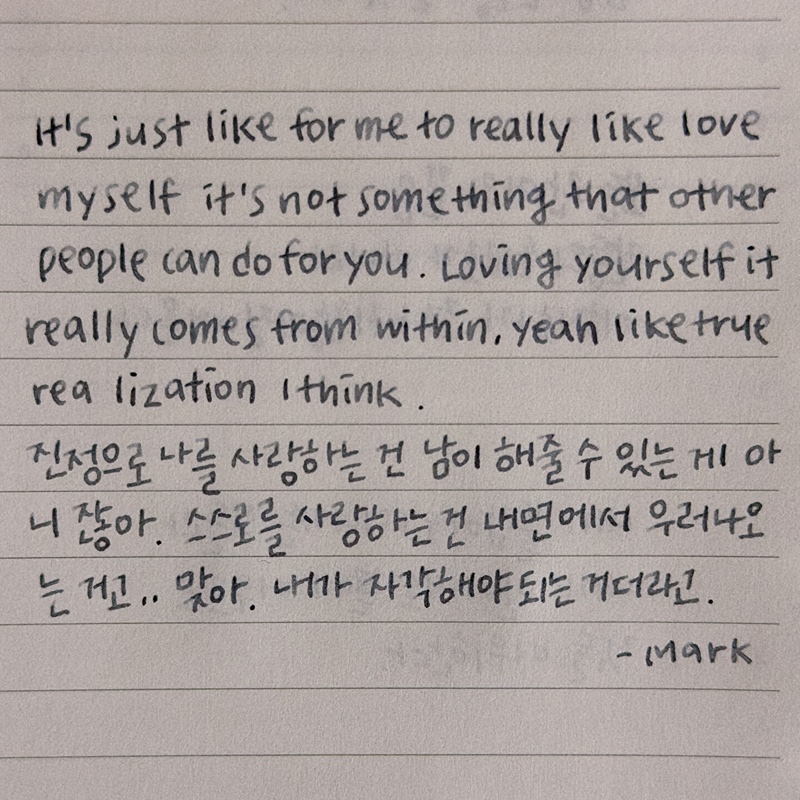 it's just like for me to really like love
myself it's not something that other
people can do for you. Loving yourself it
really comes from within, yeah like true
rea lization I think.
진정으로 나를 사랑하는 건 남이 해줄 수 있는 게 아
니 잖아. 스스로를 사랑하는 건 내면에서 우러나오
는 거고.. 맞아. 내가 자각해야 되는 거더라고.
- Mark